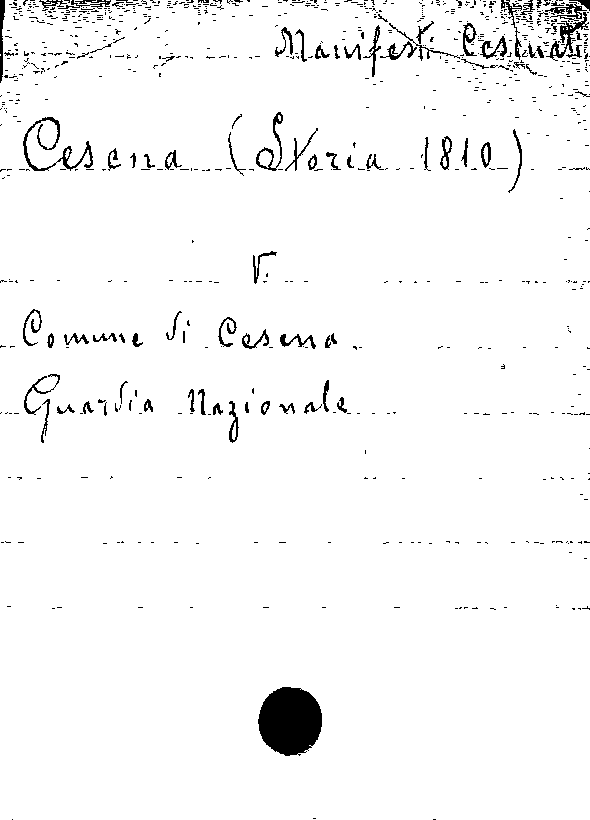 Manifesti Cesenati
Cesena (Storia 1810)
V.
Comune di Cesena.
Guardia Nazionale